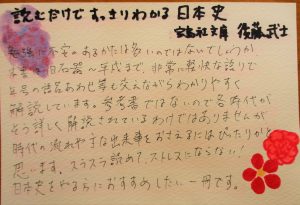 読むだけですっきりわかる日本史
宝島社文庫 後藤武士
勉強に不安のあるかたは多いのではないでしょうか
本書は旧石器～平成まで、非常に軽快な語りで
年号の語呂あわせ等も交えながらわかりやすく
解説しています。参考書ではないので各時代が
そう詳しく解説されているわけではありませんが
時代の流れや主な出来事をおさえるにはぴったりかと
思います。スラスラ読めて、ストレスにならない!
日本史をやるならにおすすめしたい一冊です。